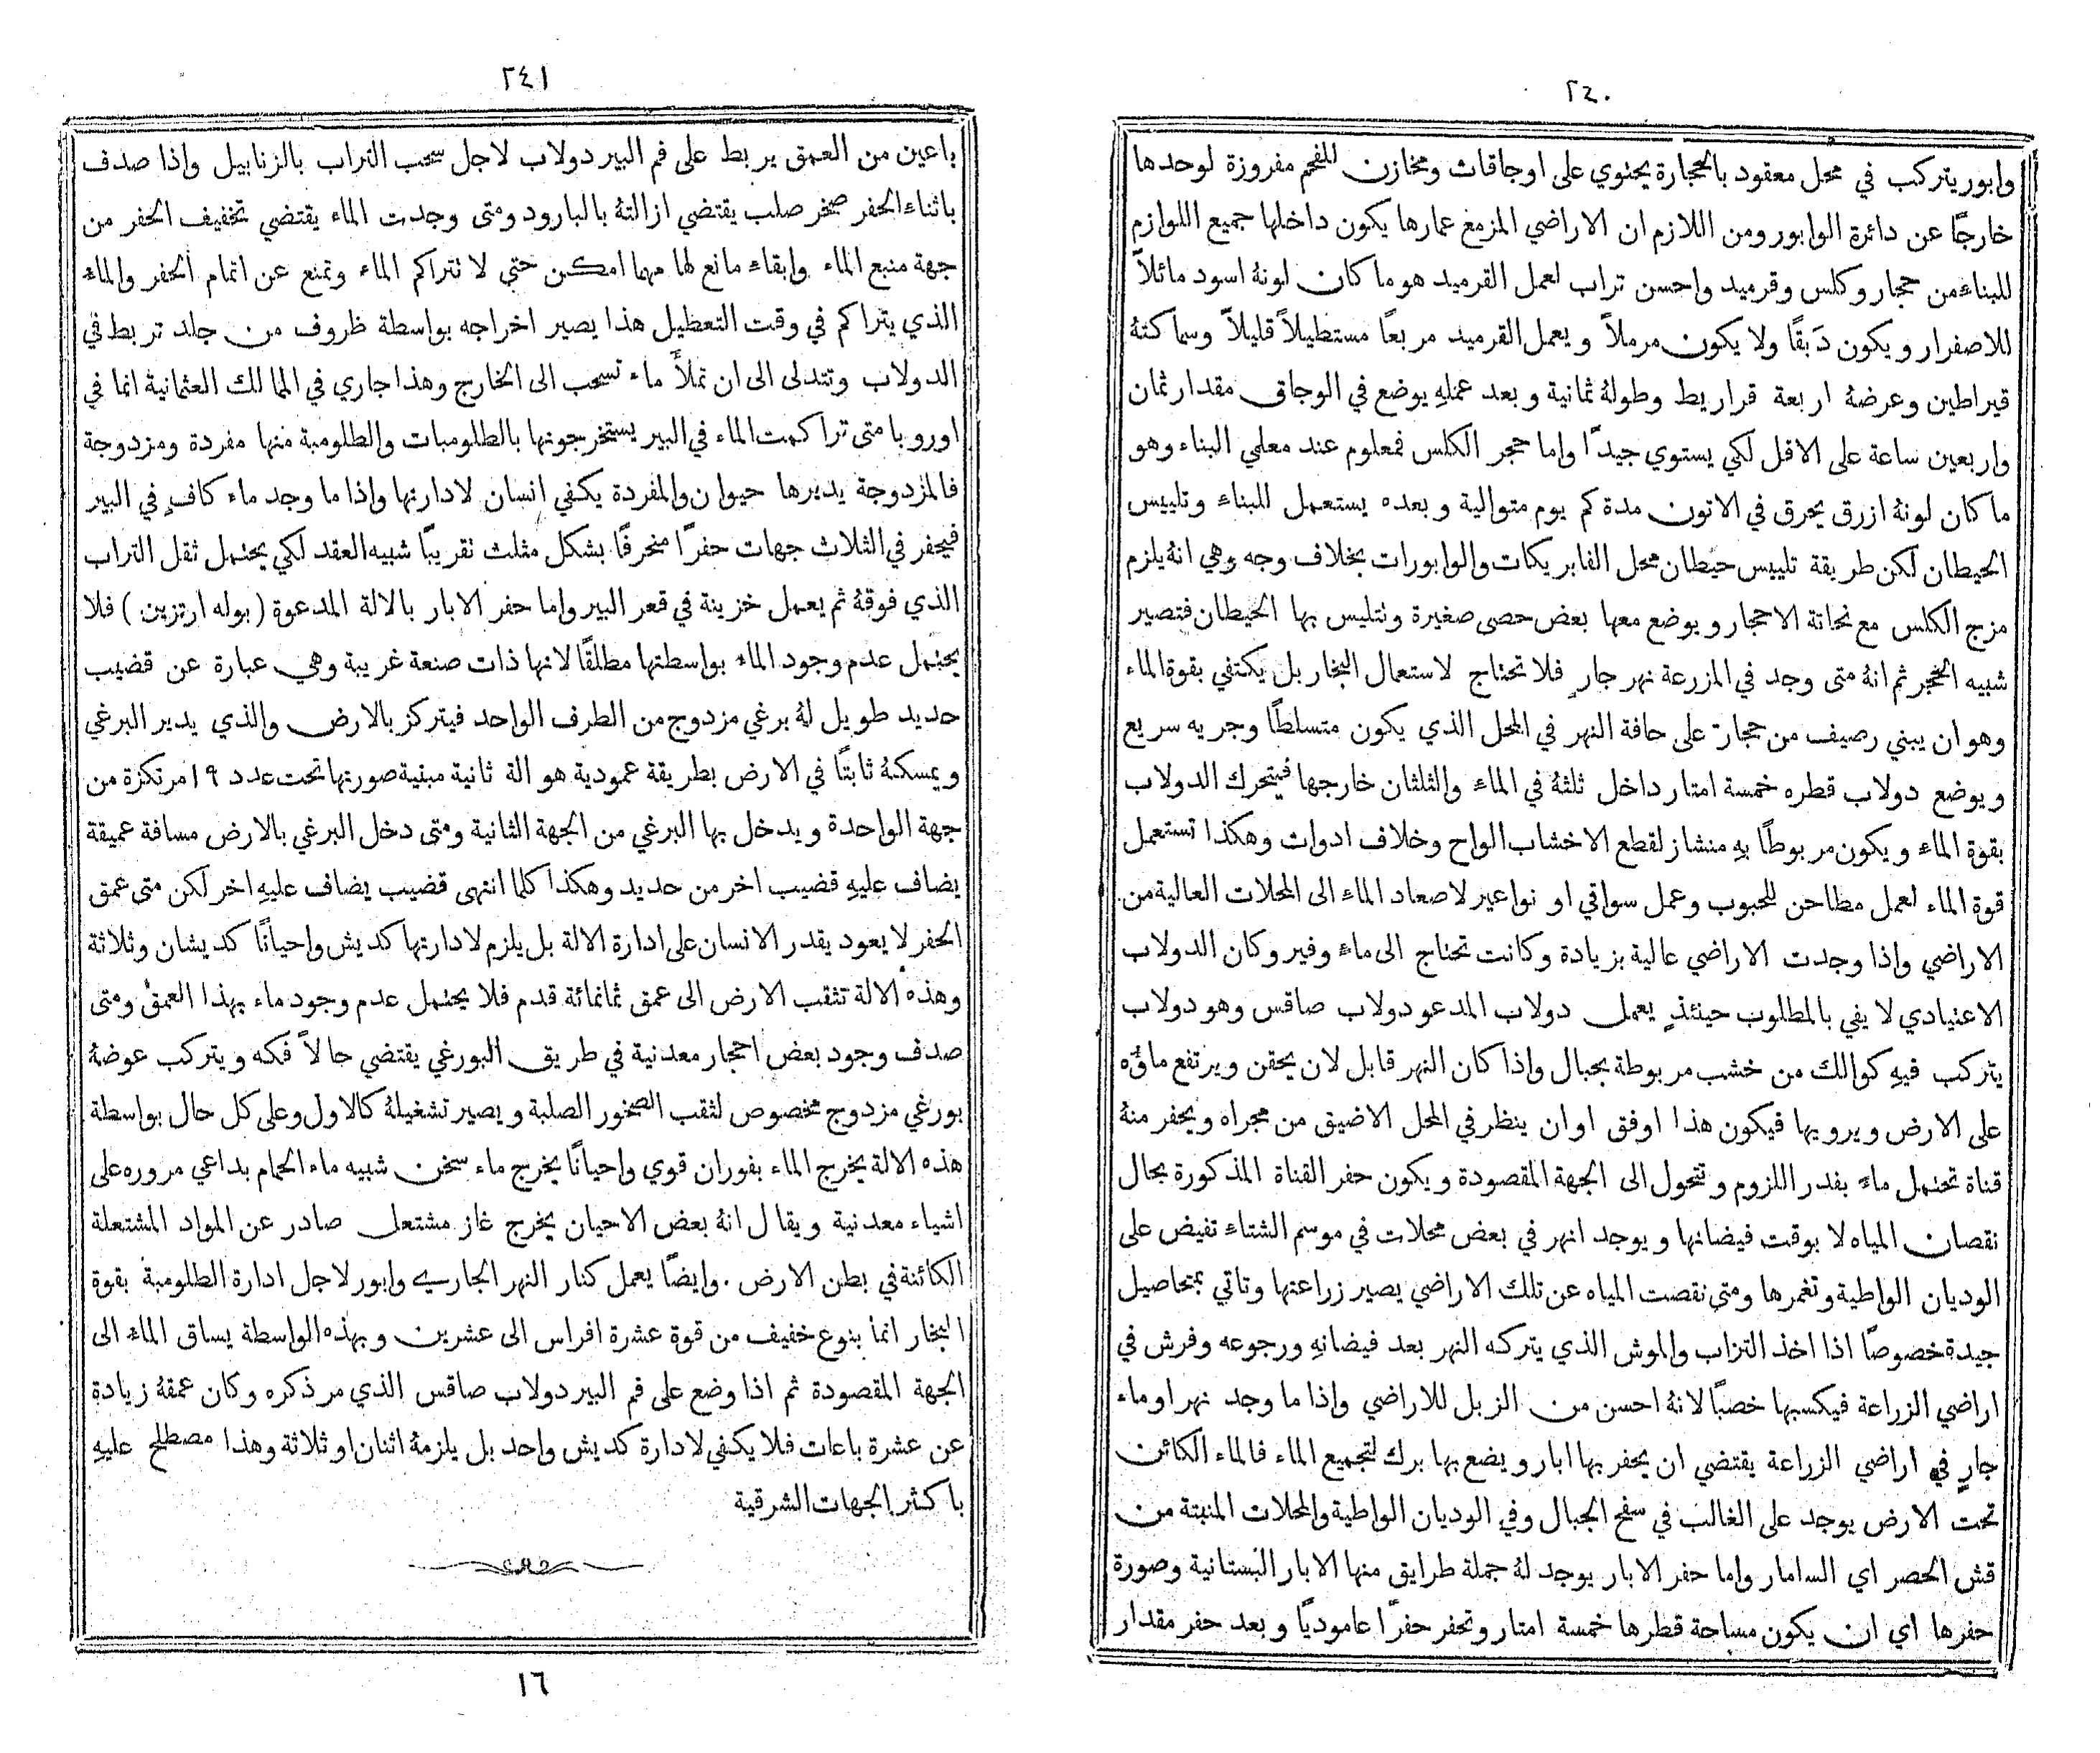 ٢٤٠
وابور يتركب في محل معقود بالحجارة يحنوي على اوجاقات ومخازن للفحم مفروزة لوحدها
خارجًا عن دائرة الوابور ومن اللازم ان الاراضي المزمع عمارها يكون داخلها جميع اللوازم
للبناء من حجار وكلس وقرميد واحسن تراب لعمل القرميد هو ما كان لونهُ اسود مائلاً
للاصفرار ويكون دَبقًا ولا يكون مرملاً ويعمل القرميد مربعًا مستطيلاً قليلاً وسماكتهُ
قيراطين وعرضهُ اربعة قراريط وطولهُ ثمانية وبعد عملهِ يوضع في الوجاق مقدار ثمان
واربعين ساعة على الاقل لكي يستوي جيدًا واما حجر الكلس فمعلوم عند معلمي البناء وهو
ما كان لونهُ ازرق يحرق في الاتون مدة كم يوم متوالية وبعده يستعمل للبناء وتلييس
الحيطان لكن طريقة تلييس حيطان محل الفابريكات والوابورات بخلاف وجه وهي انهُ يلزم
مزج الكلس مع نحاتة الاحجار ويوضع معها بعض حصى صغيرة ونتليس بها الحيطان فتصير
شبيه الحجر ثم انهُ متى وجد في المزرعة نهر جارٍ فلا تحتاج لاستعمال البخار بل يكتفي بقوة الماء
وهو ان يبني رصيف من حجارة على حافة النهر في المحل الذي يكون متسلطًا وجريه سريع
ويوضع دولاب قطره خمسة امتار داخل ثلثهُ في الماء والثلثان خارجها فيتحرك الدولاب
بقوة الماء ويكون مربوطًا بهِ منشار لقطع الاخشاب الواح وخلاف ادوات وهكذا تستعمل
قوة الماء لعمل مطاحن للحبوب وعمل سواقي او نواعير لاصعاد الماء الى المحلات العالية من
الاراضي واذا وجدت الاراضي عالية بزيادة وكانت تحتاج الى ماء وفير وكان الدولاب
الاعتيادي لا يفي بالمطلوب حينئذٍ يعمل دولاب المدعو دولاب صاقس وهو دولاب
يتركب فيهِ كوالك من خشب مربوطة بحبال واذا كان النهر قابل لان يحقن ويرتفع ماؤه
على الارض ويرويها فيكون هذا اوفق او ان ينظر في المحل الاضيق من مجراه ويحفر منهُ
قناة تحتمل ماء بقدر اللزوم وتتحول الى الجهة المقصودة ويكون حفر القناة المذكورة بحال
نقصان المياه لا بوقت فيضانها ويوجد انهر في بعض محلات في موسم الشتاء تفيض على
الوديان الواطية وتغمرها ومتى نقصت المياه عن تلك الاراضي يصير زراعتها وتاتي بمحاصيل
جيدة خصوصًا اذا اخذ التراب والموش الذي يتركه النهر بعد فيضانهِ ورجوعه وفرش في
اراضي الزراعة فيكسبها خصبًا لانهُ احسن من الزبل للاراضي واذا ما وجد نهر او ماء
جارٍ في اراضي الزراعة يقتضي ان يحفر بها ابار ويضع بها برك لتجميع الماء فالماء الكائن
تحت الارض يوجد على الغالب في سفح الجبال وفي الوديان الواطية والمحلات المنبتة من
قش الحصر اي السامار واما حفر الابار يوجد لهُ جملة طرايق منها الابار البستانية وصورة
حفرها اي ان يكون مساحة قطرها خمسة امتار وتحفر حفرًا عاموديًا وبعد حفر مقدار
٢٤١
باعين من العمق يربط على فم البير دولاب لاجل سحب التراب بالزنابيل واذا صدف
باثناء الحفر صخر صلب يقتضي ازالتهُ بالبارود ومتى وجدت الماء يقتضي تخفيف الحفر من
جهة منبع الماء وابقاء مانع لها مهما امكن حتى لا نتراكم الماء وتمنع عن اتمام الحفر والماء
الذي يتراكم في وقت التعطيل هذا يصير اخراجه بواسطة ظروف من جلد تربط في
الدولاب وتتدلى الى ان تملأ ماء تسحب الى الخارج وهذا جاري في الممالك العثمانية انما في
اوروبا متى تراكمت الماء في البير يستخرجونها بالطلومبات والطلومبة منها مفردة ومزدوجة
فالمزدوجة يديرها حيوان والمفردة يكفي انسان لادارتها واذا ما وجد ماء كافٍ في البير
فيحفر في الثلاث جهات حفرًا منحرفًا بشكل مثلث نقريبًا شبيه العقد لكي يحتمل ثقل التراب
الذي فوقهُ ثم يعمل خزينة في قعر البير واما حفر الابار بالالة المدعوة ( بوله ارتزين ) فلا
يحتمل عدم وجود الماء بواسطتها مطلقًا لانها ذات صنعة غريبة وهي عبارة عن قضيب
حديد طويل لهُ برغي مزدوج من الطرف الواحد فيتركز بالارض والذي يدير البرغي
ويمسكهُ ثابتًا في الارض بطريقة عمودية هو الة ثانية مبنية صورتها تحت عدد ١٩ مرتكزة من
جهة الواحدة ويدخل بها البرغي من الجهة الثانية ومتى دخل البرغي بالارض مسافة عميقة
يضاف عليهِ قضيب اخر من حديد وهكذا كلما انتهى قضيب يضاف عليهِ اخر لكن متى عمق
الحفر لا يعود يقدر الانسان على ادارة الالة بل يلزم لادارتها كديش واحيانًا كديشان وثلاثة
وهذه الالة تثقب الارض الى عمق ثمانمائة قدم فلا يحتمل عدم وجود ماء بهذا العمق ومتى
صدف وجود بعض احجار معدنية في طريق البورغي يقتضي حالاً فكه ويتركب عوضهُ
بورغي مزدوج مخصوص لثقب الصخور الصلبة ويصير تشغيلهُ كالاول وعلى كل حال بواسطة
هذه الالة يخرج الماء بفوران قوي واحيانًا يخرج ماء سخن شبيه ماء الحمام بداعي مروره على
اشياء معدنية ويقال انهُ بعض الاحيان يخرج غاز مشتعل صادر عن المواد المشتعلة
الكائنة في بطن الارض . وايضًا يعمل كنار النهر الجاري وابور لاجل ادارة الطلومبة بقوة
البخار انما بنوع خفيف من قوة عشرة افراس الى عشرين وبهذه الواسطة يساق الماء الى
الجهة المقصودة ثم اذا وضع على فم البير دولاب صاقس الذي مر ذكره وكان عمقهُ زيادة
عن عشرة باعات فلا يكفي لادارة كديش واحد بل يلزمهُ اثنان او ثلاثة وهذا مصطلح عليهِ
باكثر الجهات الشرقية
١٦